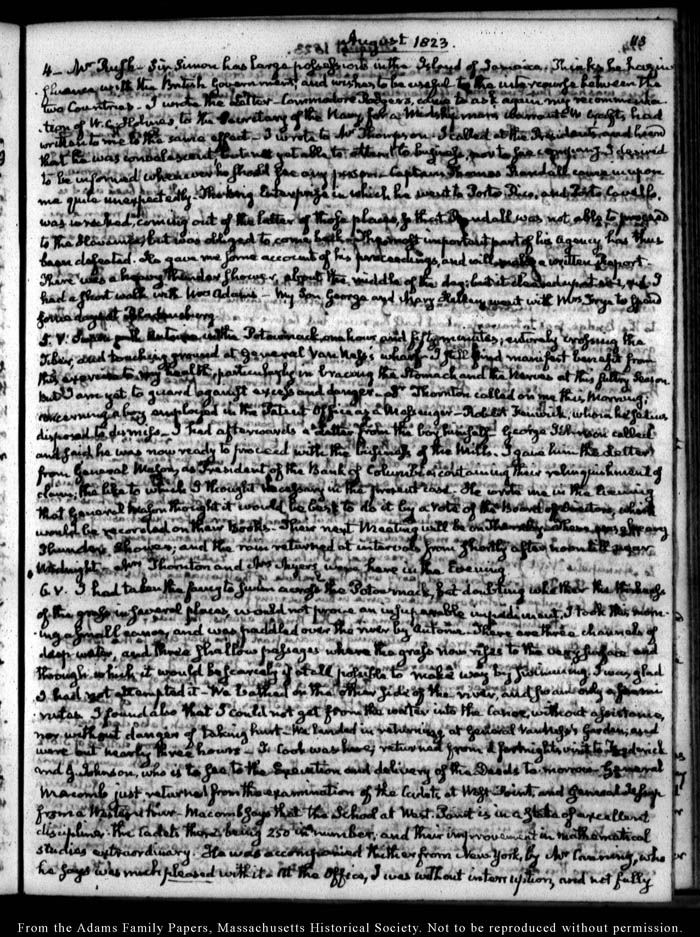 August 1823.
113
4 — Mr Rush — Sir Simon has large possessions in the Island of Jamaica. Thinks he has in-
fluence with the British Government, and wishes to be useful to the intercourse between the
two Countries. I wrote the letter. Commodore Rodgers, came to ask again my recommenda-
tion of W. C. to the Secretary of the Navy, for a Midshipman's Warrant. had
written to me to the same effect — I wrote to Mr Thompson. I called at the Presidents, and heard
that he was convalescent but not yet able to attend to business, nor to see company. I desired
to be informed whenever he should see any person. Captain Thomas Randall came in upon
me quite unexpectedly. The Enterprize in which he went to Porto Rico, and Porto Cavello,
was wrecked, coming out of the latter of those places, so that Randall was not able to proceed
to the Havanna, but was obliged to come back. The most important part of his Agency has thus
been defeated. He gave me some account of his proceedings, and will make a written Report.
There was a heavy thunder shower, about the middle of the day; but it cleared up at and I
had a short walk with Mrs Adams — My Son George and Mary Hellen went with Mrs Frye to spend
some days at Bladensburg.
5. V. Swam with Antoine in the Potowmack, one hour and fifty minutes; entirely crossing the
Tiber, and touching ground at General Van Ness's wharf. I still find manifest benefit from
this exercise to my health, particularly in bracing the Stomach and the Nerves at this sultry Season.
But I am yet to guard against excess and danger — Dr Thornton called on me this Morning;
concerning a boy employed in the Patent Office as a Messenger — Robert Fenwick, whom he
disposed to dismiss. I had afterwards a letter from the boy himself. George Johnson called
and said he was now ready to proceed with the business of the Mills. I gave him the letter
from General Mason, as President of the Bank of Columbia, containing their relinquishment of
claim; the like to which I thought necessary in the present case. He wrote me in the Evening
that General Mason thought it would be best to do it by a vote of the Board of Directors, which
would be recorded on their Books. Their next Meeting will be on Thursday. There was a heavy
Thunder Shower; and the rain returned at intervals from shortly after noon till near
Midnight — Mrs Thornton and Mrs were here in the Evening.
6. V. I had taken the fancy to swim across the Potowmack, but doubting whether the thickness
of the grass in several places, would not prove an insuperable impediment, I took this morn-
ing a small canoe, and was paddled over the river by Antoine. There are three channels of
deep water, and three shallow passages where the grass now rises to the very surface and
through which it would be scarcely if at all possible to make way by swimming. I was glad
I had not attempted it — We bathed on the other side of the river, and swam only a few mi-
nutes. I found also that I could not get from the water into the Canoe, without assistance,
nor without danger of taking hurt — We landed in returning at General Van Ness's Garden; and
were out nearly three hours — Dr Cook was here; returned from a fortnight's visit to Frederick
and G. Johnson, who is to see to the Execution and delivery of the Deeds to-morrow — General
Macomb just returned from the examination of the Cadets at West-Point and General Jesup
from a Western tour — Macomb says that the School at West Point is in a state of excellent
discipline. The Cadets there being 250 in number, and their improvement in mathematical
studies extraordinary. He was accompanied thither from New York, by Mr Canning, who
he says was much pleased with it — At the Office, I was without interruption, and not fully
From the Adams Family Papers, Massachusetts Historical Society. Not to be reproduced without permission.